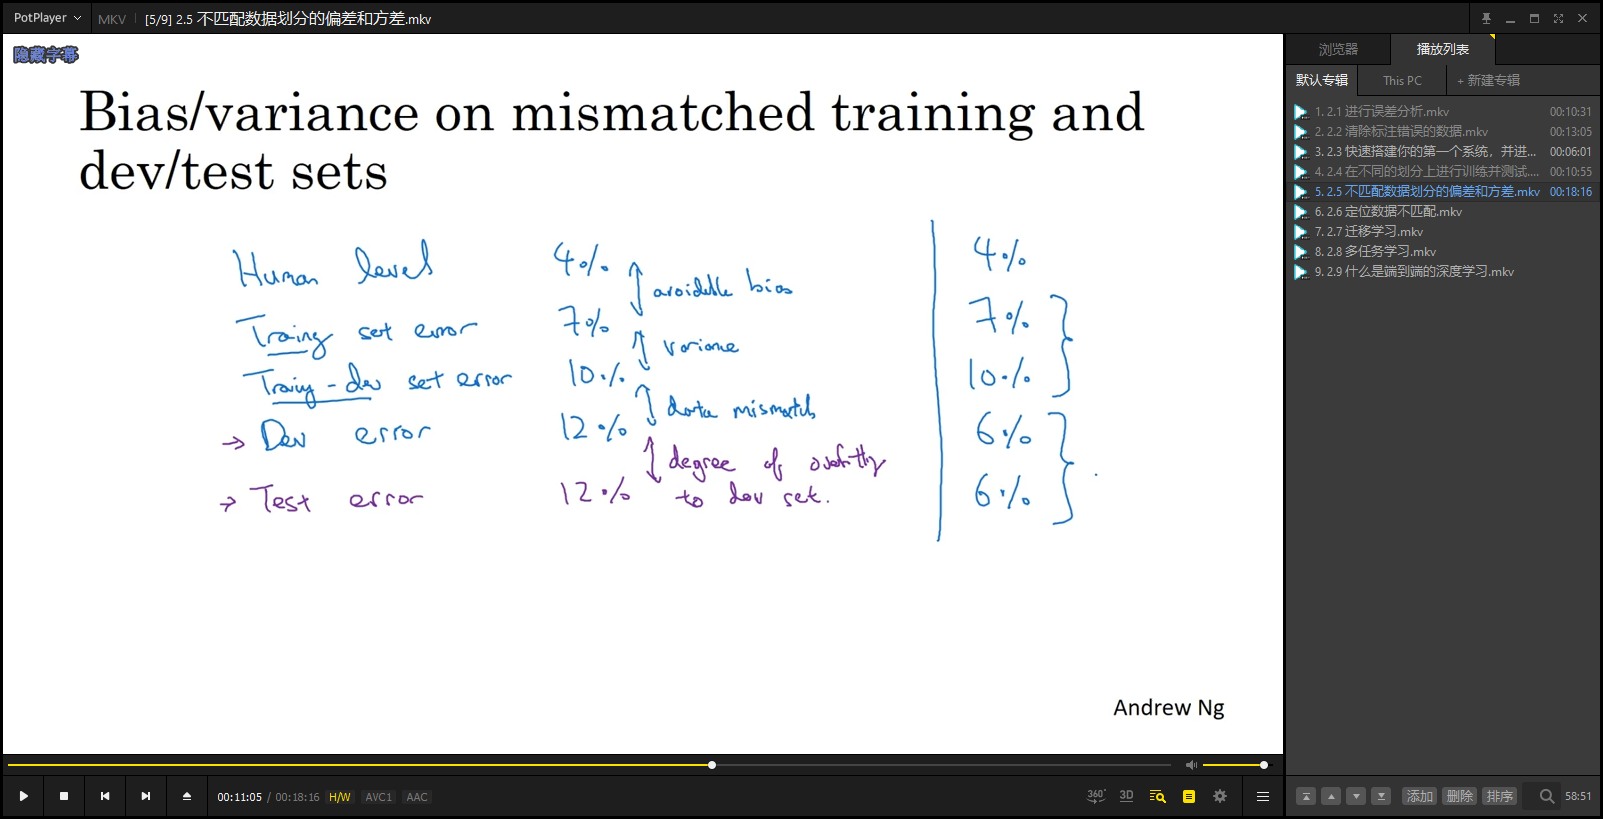 PotPlayer MKV [5/9] 2.5 不匹配数据划分的偏差和方差.mkv
隐藏字幕
Bias/variance on mismatched training and
dev/test sets
Human level 4% avoidable bias 4%
Training set error 7% variance 7%
Training-dev set error 10% data mismatch 10%
→ Dev error 12% degree of overfitting 6%
→ Test error 12% to dev set. 6%
Andrew Ng
00:11:05 / 00:18:16 H/W AVC1 AAC
360° 3D
浏览器 播放列表
默认专辑 This PC + 新建专辑
1. 2.1 进行误差分析.mkv 00:10:31
2. 2.2 清除标注错误的数据.mkv 00:13:05
3. 2.3 快速搭建你的第一个系统，并进... 00:06:01
4. 2.4 在不同的划分上进行训练并测试.... 00:10:55
5. 2.5 不匹配数据划分的偏差和方差.mkv 00:18:16
6. 2.6 定位数据不匹配.mkv
7. 2.7 迁移学习.mkv
8. 2.8 多任务学习.mkv
9. 2.9 什么是端到端的深度学习.mkv
添加 删除 排序 58:51